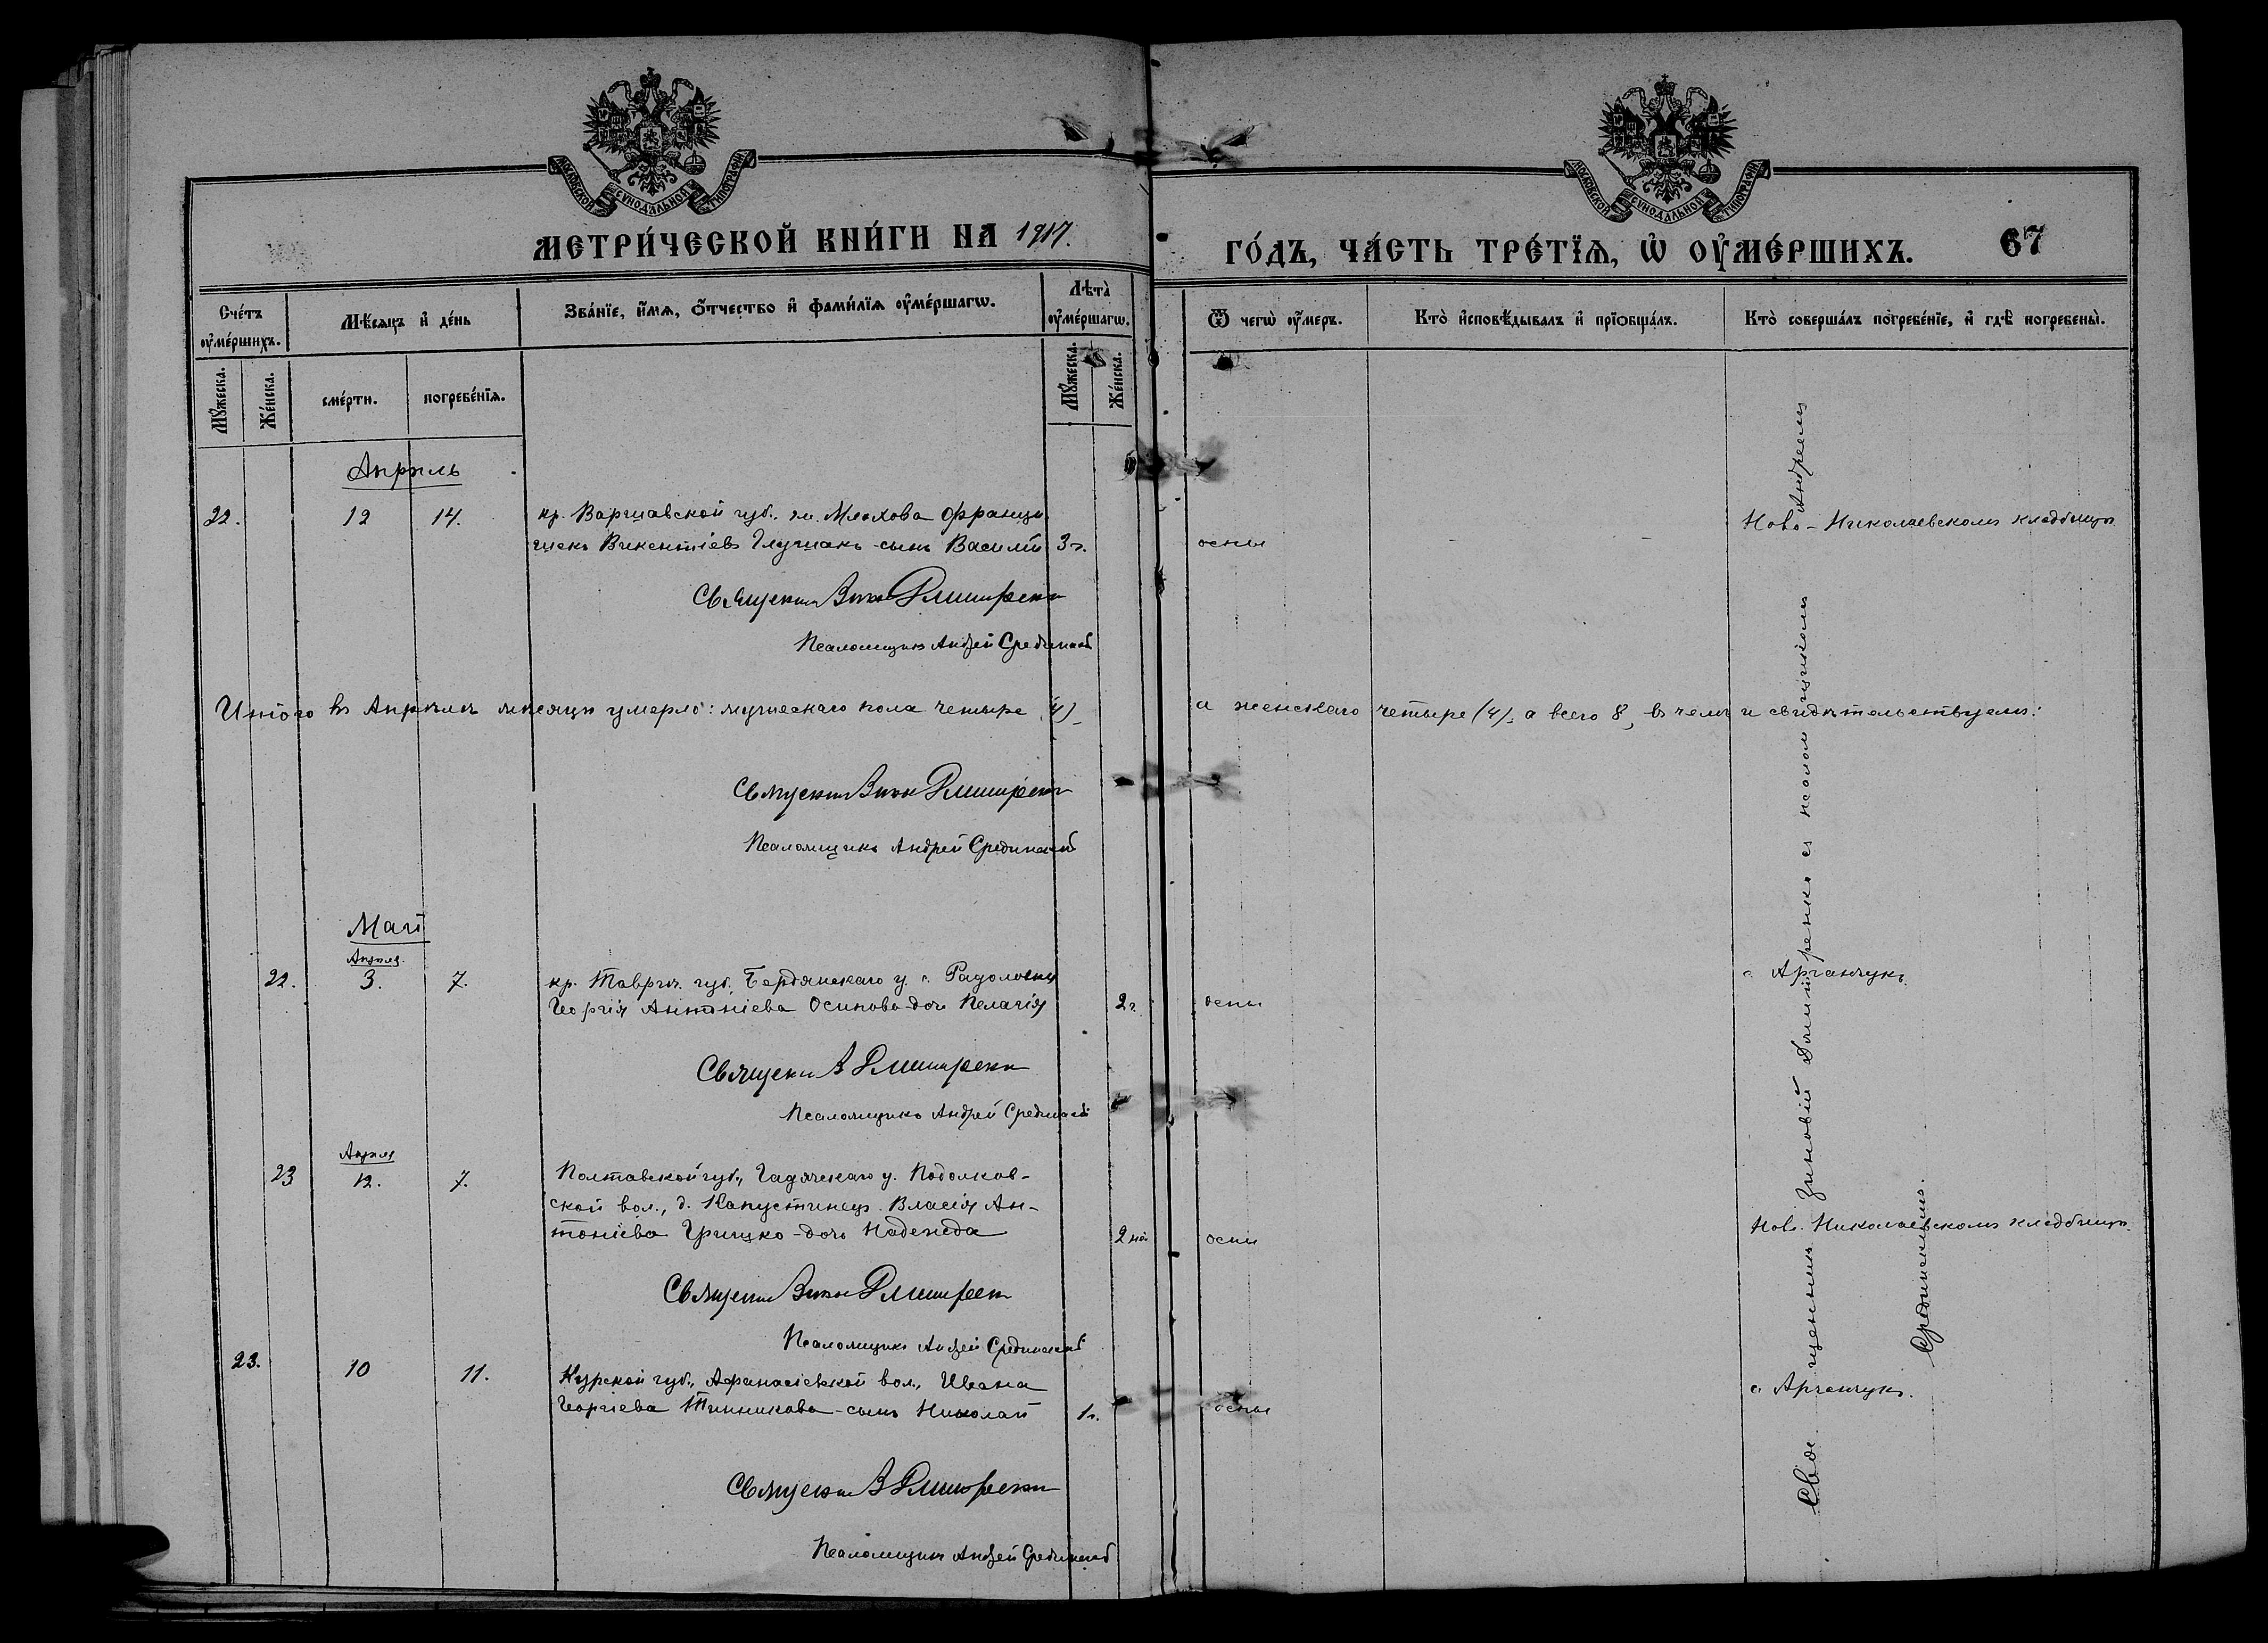 МОСКОВСКОЙ СѴНОДАЛЬНОЙ ТИПОГРАФІИ
МОСКОВСКОЙ СѴНОДАЛЬНОЙ ТИПОГРАФІИ
МЕТРИ́ЧЕСКОЙ КНИ́ГИ НА 1917.
ГО́ДЪ, ЧА́СТЬ ТРЕ́ТЇѦ, Ѡ҆ ОУ҆МЕ́РШИХЪ.
67
Сче́тъ оу҆ме́ршихъ.
Мѣ́сяцъ и҆ де́нь
Зва́нїе, и҆́мѧ, ѻ҆́тчество и҆ фами́лїѧ оу҆ме́ршагѡ.
Лѣта̀ оу҆ме́ршагѡ.
Ѿ чегѡ̀ оу҆́меръ.
Кто̀ и҆сповѣ́дывалъ и҆ прїѻбща́лъ.
Кто̀ соверша́лъ погребе́нїе, и҆ гдѣ̀ погребены̀.
Мꙋ́жеска.
Же́нска.
сме́рти.
погребе́нїѧ.
Мꙋ́жеска.
Же́нска.
Апрѣль
22. 12 14. кр. Варшавской губ., Францы-
шекъ Викентіевъ Глущакъ - сынъ Василій 3 г. оспы
Ново-Николаевскомъ кладбищѣ
Священникъ Зинов Дмитренко
Псаломщикъ Андрей Срединскій
Итого въ Апрѣлѣ мѣсяцѣ умерло: мужескаго пола четыре (4), а женскаго четыре (4), а всего 8, въ чемъ и свидѣтельствуемъ:
Священникъ Зинов Дмитренко
Псаломщикъ Андрей Срединскій
Май
Апрѣля.
22. 3. 7. кр. Таврич. губ. Бердянскаго у. с. Радоловки
Георгія Антоніева Осипова дочь Пелагія 2 г. оспы
с. Арганчукъ.
Священн З Дмитренко
Псаломщикъ Андрей Срединскій
Апрѣля
23 12. 7. Полтавской губ., Гадячскаго у. Подолков-
ской вол., д. Капустинец. Власія Ан-
тоніева Грицко - дочь Надежда 2 оспы
Ново-Николаевскомъ кладбищѣ.
Священникъ Зинов Дмитренко
Псаломщикъ Андрей Срединскій
23. 10 11. Курской губ., Афанасіевской вол., Ивана
Георгіева Тинникова - сынъ Николай 1 г. оспы
с. Арганчукъ.
Священникъ З Дмитренко
Псаломщикъ Андрей Срединскій
Священникъ Зиновій Дмитренко съ псаломщикомъ Андреемъ
Срединскимъ.